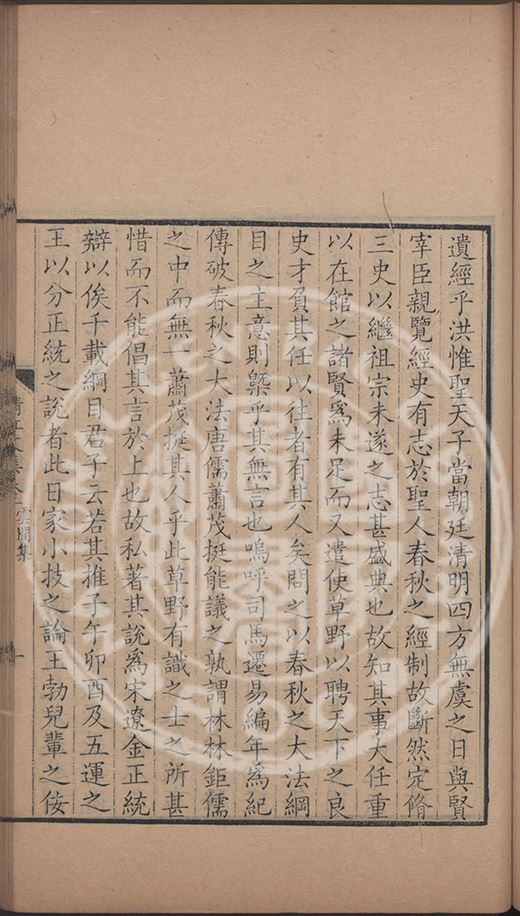 遺經乎洪惟聖天子當朝廷清明四方無虞之日與賢
宰臣親覽經史有志於聖人春秋之經制故斷然定脩
三史以繼祖宗未遂之志甚盛典也故知其事大任重
以在館之諸賢爲未足而又遣使草野以聘天下之良
史才負其任以往者有其人矣問之以春秋之大法綱
目之主意則槩乎其無言也嗚呼司馬遷易編年爲紀
傳破春秋之大法唐儒蕭茂挺能議之孰謂林林鉅儒
之中而無一蕭茂挺其人乎此草野有識之士之所甚
惜而不能倡其言於上也故私著其說爲宋遼金正統
辯以俟千載綱目君子云若其推子午卯酉及五運之
王以分正統之說者此日家小技之論王勃兒輩之佞
雲間集